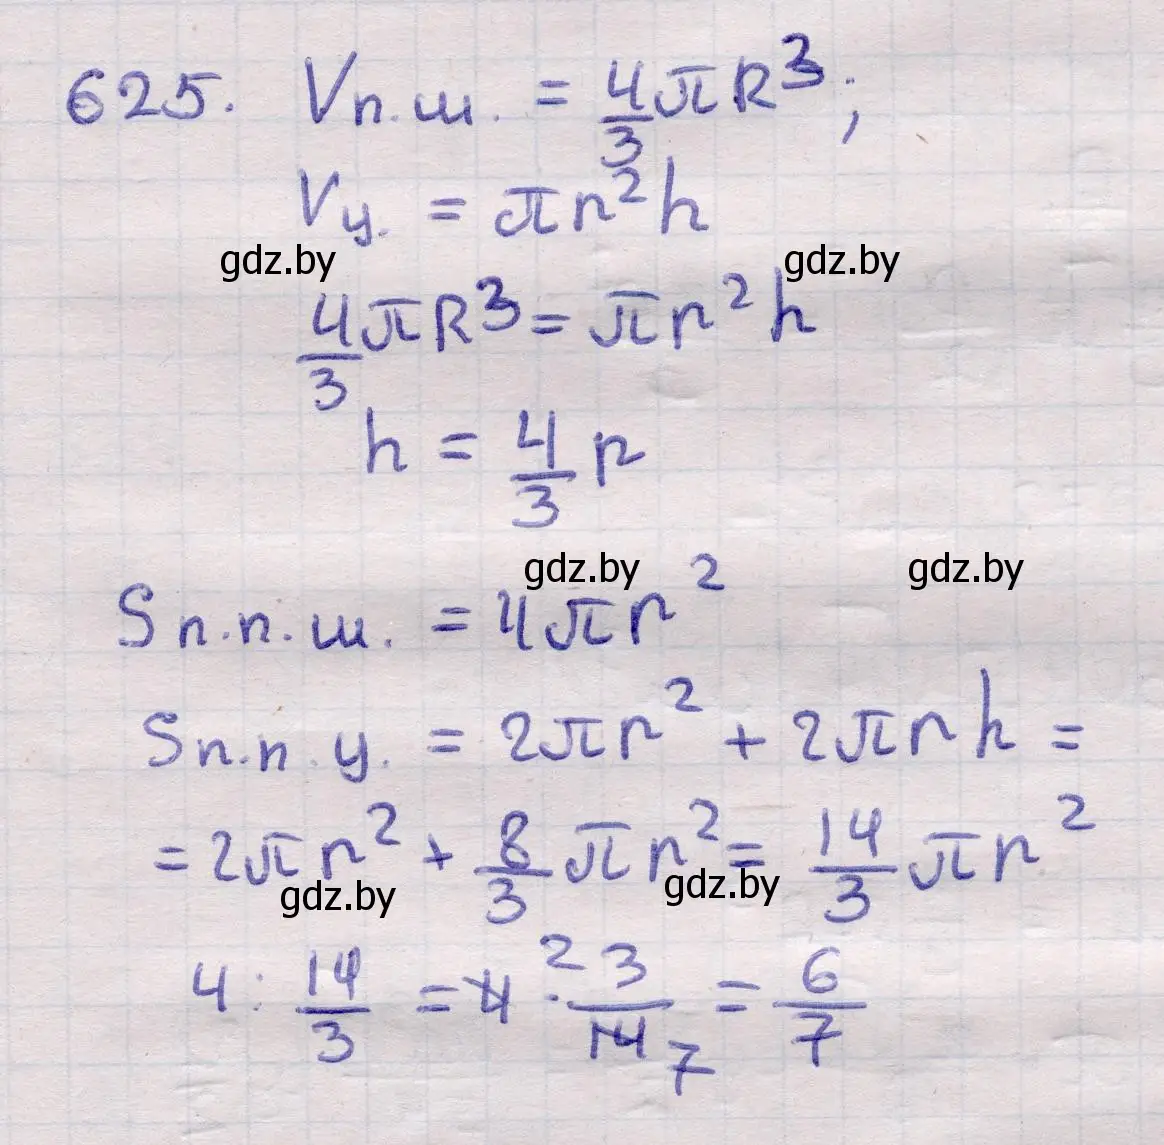 625. Vп.ш. = 4/3 πR³;
Vу. = πr²h
gdz.by gdz.by
4/3 πR³ = πr²h
h = 4/3 r
gdz.by gdz.by
Sп.п.ш. = 4πr²
Sп.п.у. = 2πr² + 2πrh =
= 2πr² + 8/3 πr² = 14/3 πr²
gdz.by gdz.by
4 : 14/3 = 4 2 · 3/14 7 = 6/7